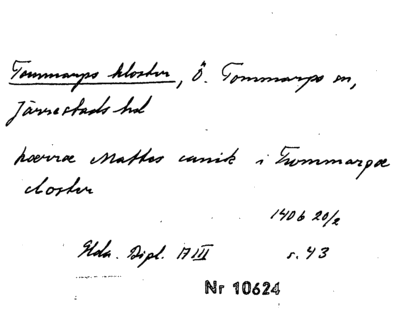 Tommarps kloster, Ö. Tommarps sn,
Järrestads hd
hærræ Mattes canik i Tommarpæ
closter
1406 20/2
Glda. Dipl. A III s. 43
Nr 10624